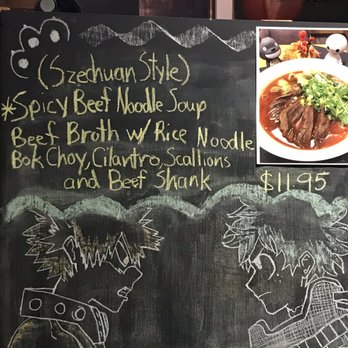 (Szechuan Style)
*Spicy Beef Noodle Soup
Beef Broth w/ Rice Noodle
Bok Choy, Cilantro, Scallions
and Beef Shank $11.95